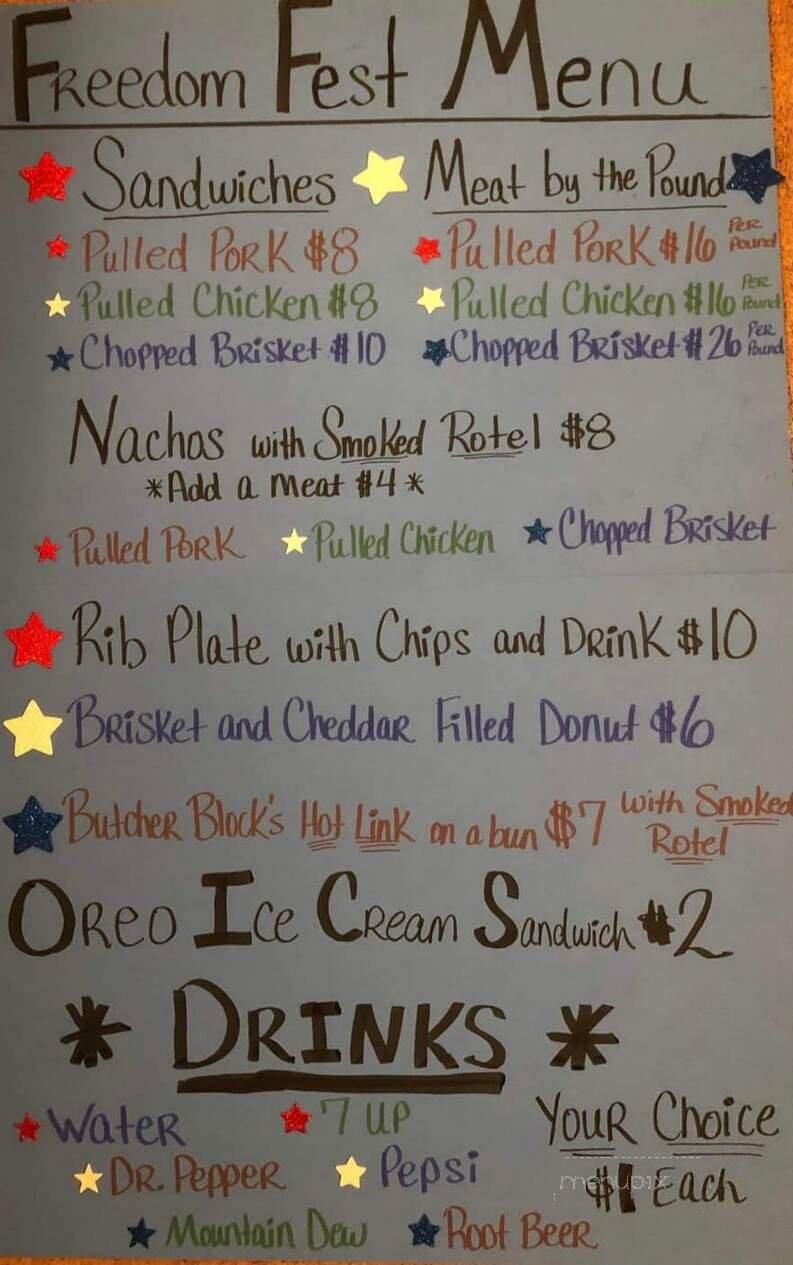 Freedom Fest Menu
Sandwiches
Pulled Pork $8
Pulled Chicken $8
Chopped Brisket $10
Meat by the Pound
Pulled Pork $16 Per Pound
Pulled Chicken $16 Per Pound
Chopped Brisket $26 Per Pound
Nachos with Smoked Rotel $8
*Add a meat $4*
Pulled Pork Pulled Chicken Chopped Brisket
Rib Plate with Chips and Drink $10
Brisket and Cheddar Filled Donut $6
Butcher Block's Hot Link on a bun $7 with Smoked Rotel
Oreo Ice Cream Sandwich $2
* DRINKS *
Water 7 UP
Dr. Pepper Pepsi
Mountain Dew Root Beer
Your Choice
$1 Each
menupix